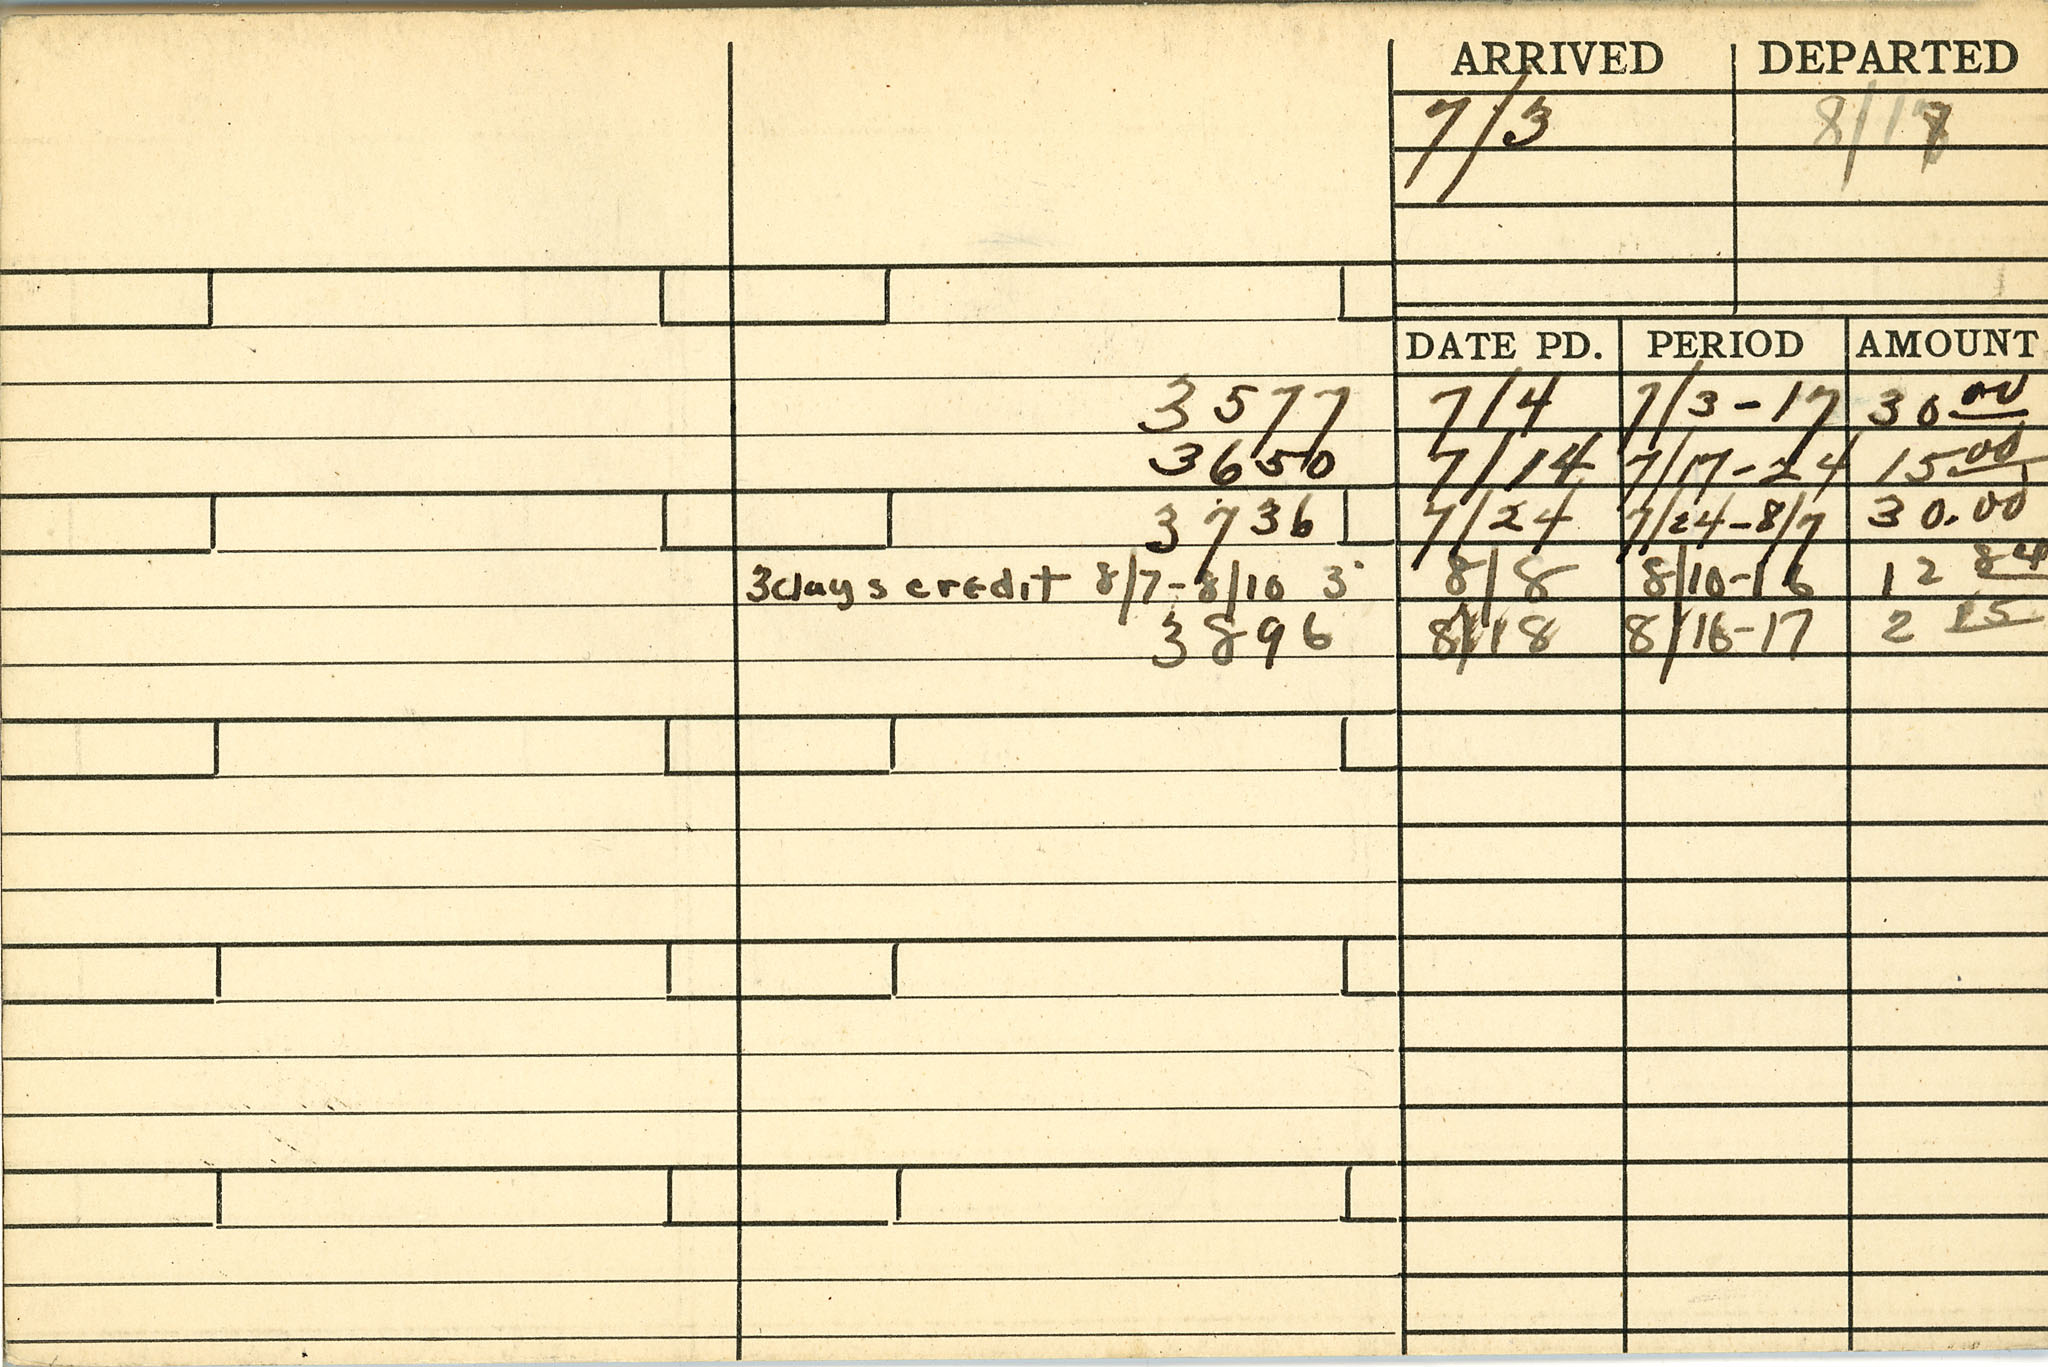 ARRIVED DEPARTED
7/3 8/17
DATE PD. PERIOD AMOUNT
3577 7/4 7/3-17 30.00
3650 7/14 7/17-24 15.00
3736 7/24 7/24-8/7 30.00
3 days credit 8/7-8/10 3 8/8 8/10-16 12 84
3896 8/18 8/16-17 2 15